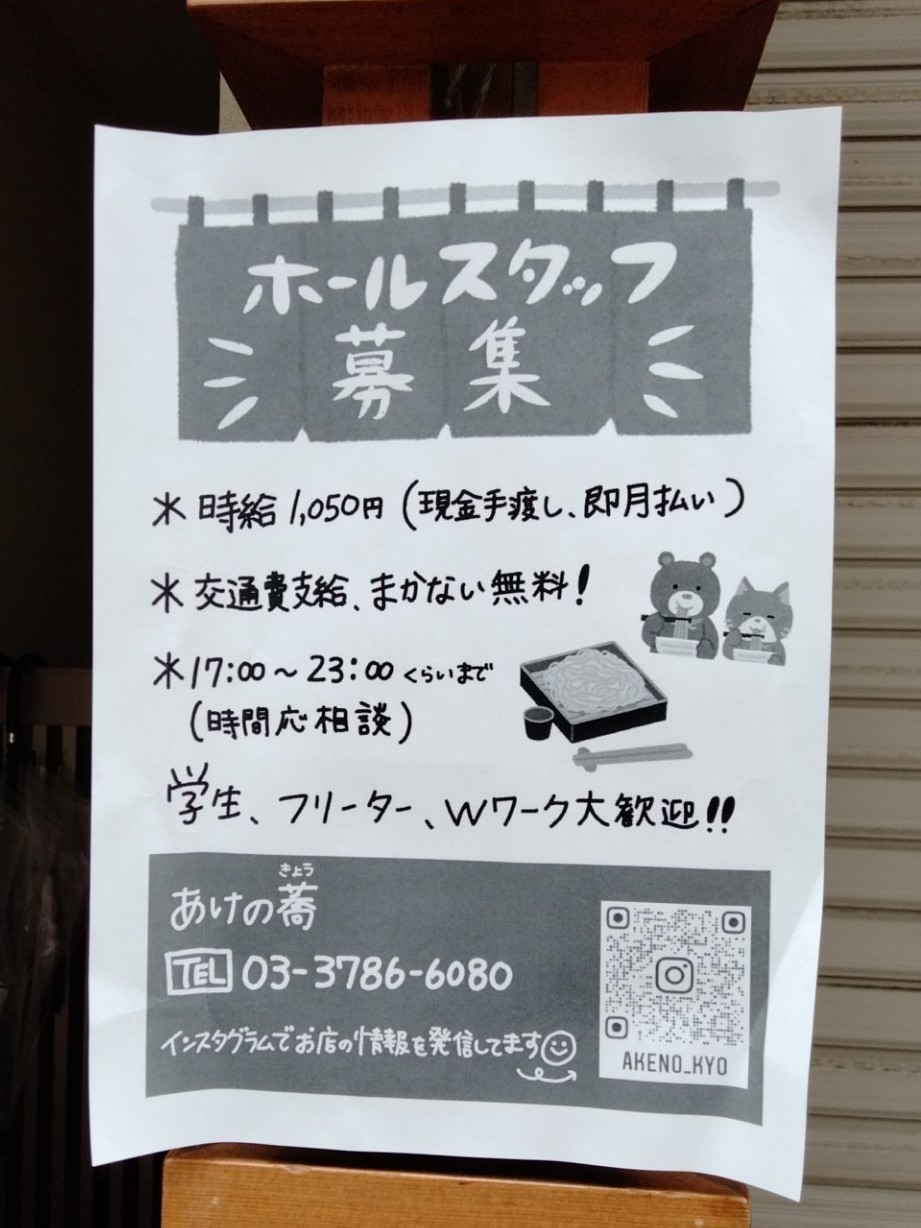 ホールスタッフ
募集
＊時給1,050円(現金手渡し、即月払い)
＊交通費支給、まかない無料!
＊17:00～23:00くらいまで
(時間応相談)
学生、フリーター、Wワーク大歓迎!!
きょう
あけの蕎
TEL 03-3786-6080
インスタグラムでお店の情報を発信してます
AKENO_KYO